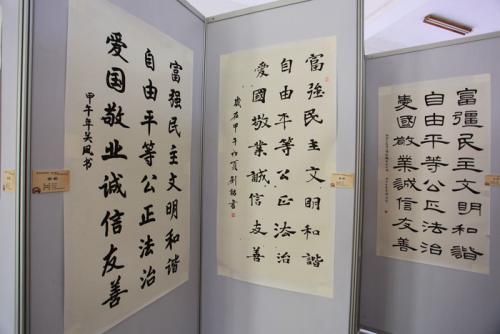 富强民主文明和谐
自由平等公正法治
爱国敬业诚信友善
甲午年吴凤书
富強民主文明和諧
自由平等公正法治
愛國敬業誠信友善
歲在甲午初夏劉書
富彊民主文明和諧
自由平等公正法治
愛國敬業誠信友善